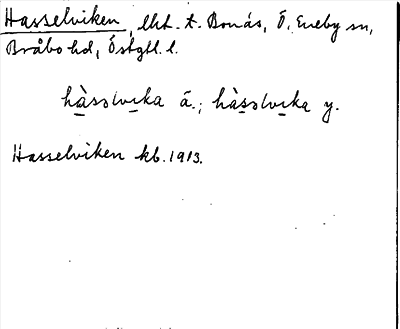 Hasselviken, lht. t. Bonäs, Ö. Eneby sn,
Bråbo hd, Östgtl. l.
hàsslvika ä.; hàsslvika y.
Hasselviken kb. 1913.